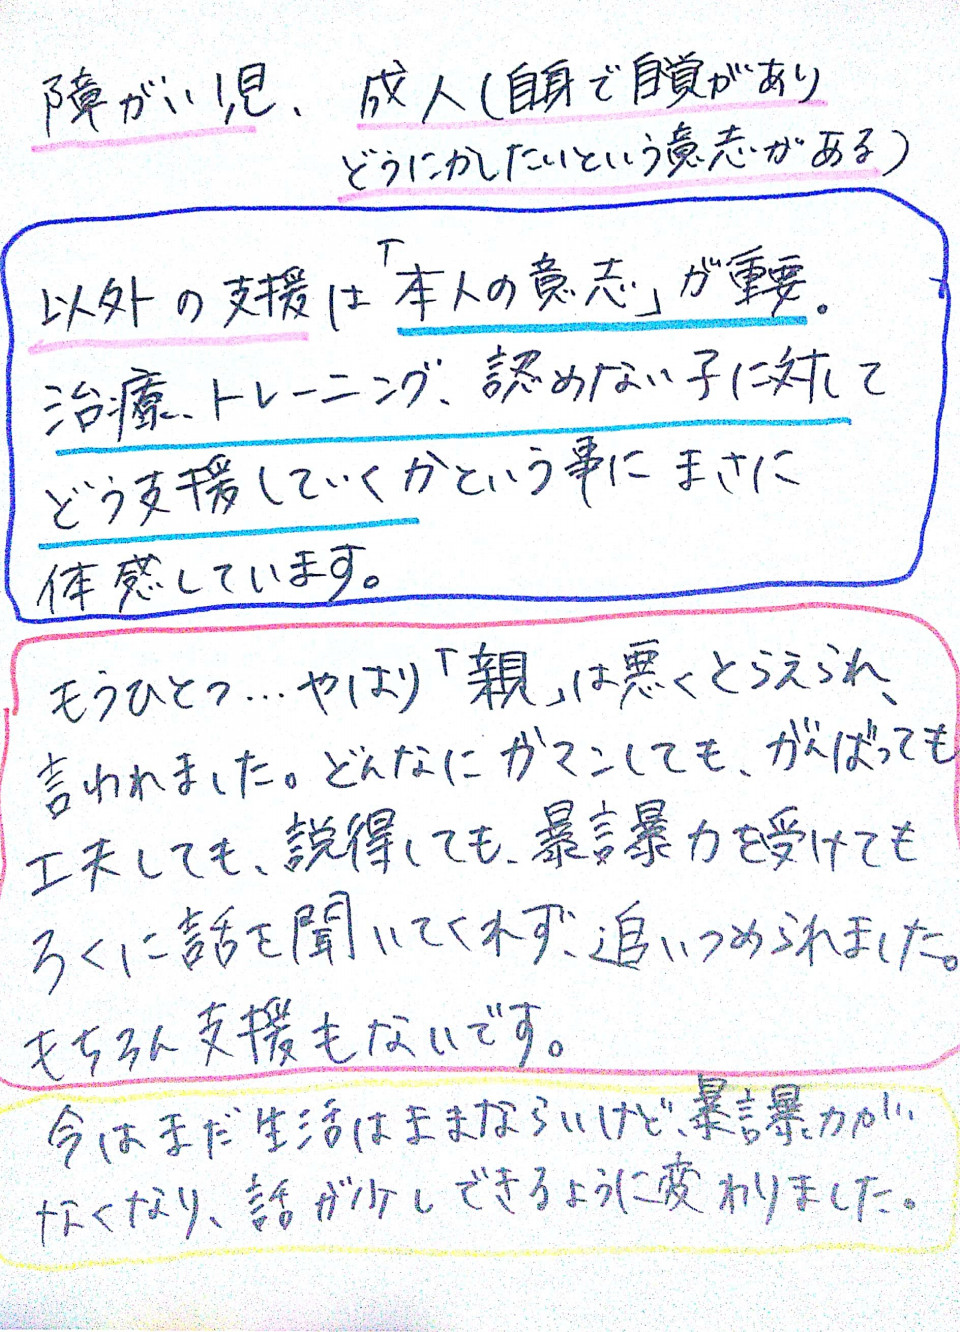 障がい児、成人(自身で自覚があり
どうにかしたいという意志がある)
以外の支援は「本人の意志」が重要。
治療、トレーニング、認めない子に対して
どう支援していくかという事にまさに
体感しています。
もうひとつ…やはり「親」は悪くとらえられ、
言われました。どんなにガマンしても、がんばっても
工夫しても、説得しても、暴言暴力を受けても
ろくに話を聞いてくれず、追いつめられました。
もちろん支援もないです。
今はまだ生活はままならいけど、暴言暴力が
なくなり、話が少しできるように変わりました。